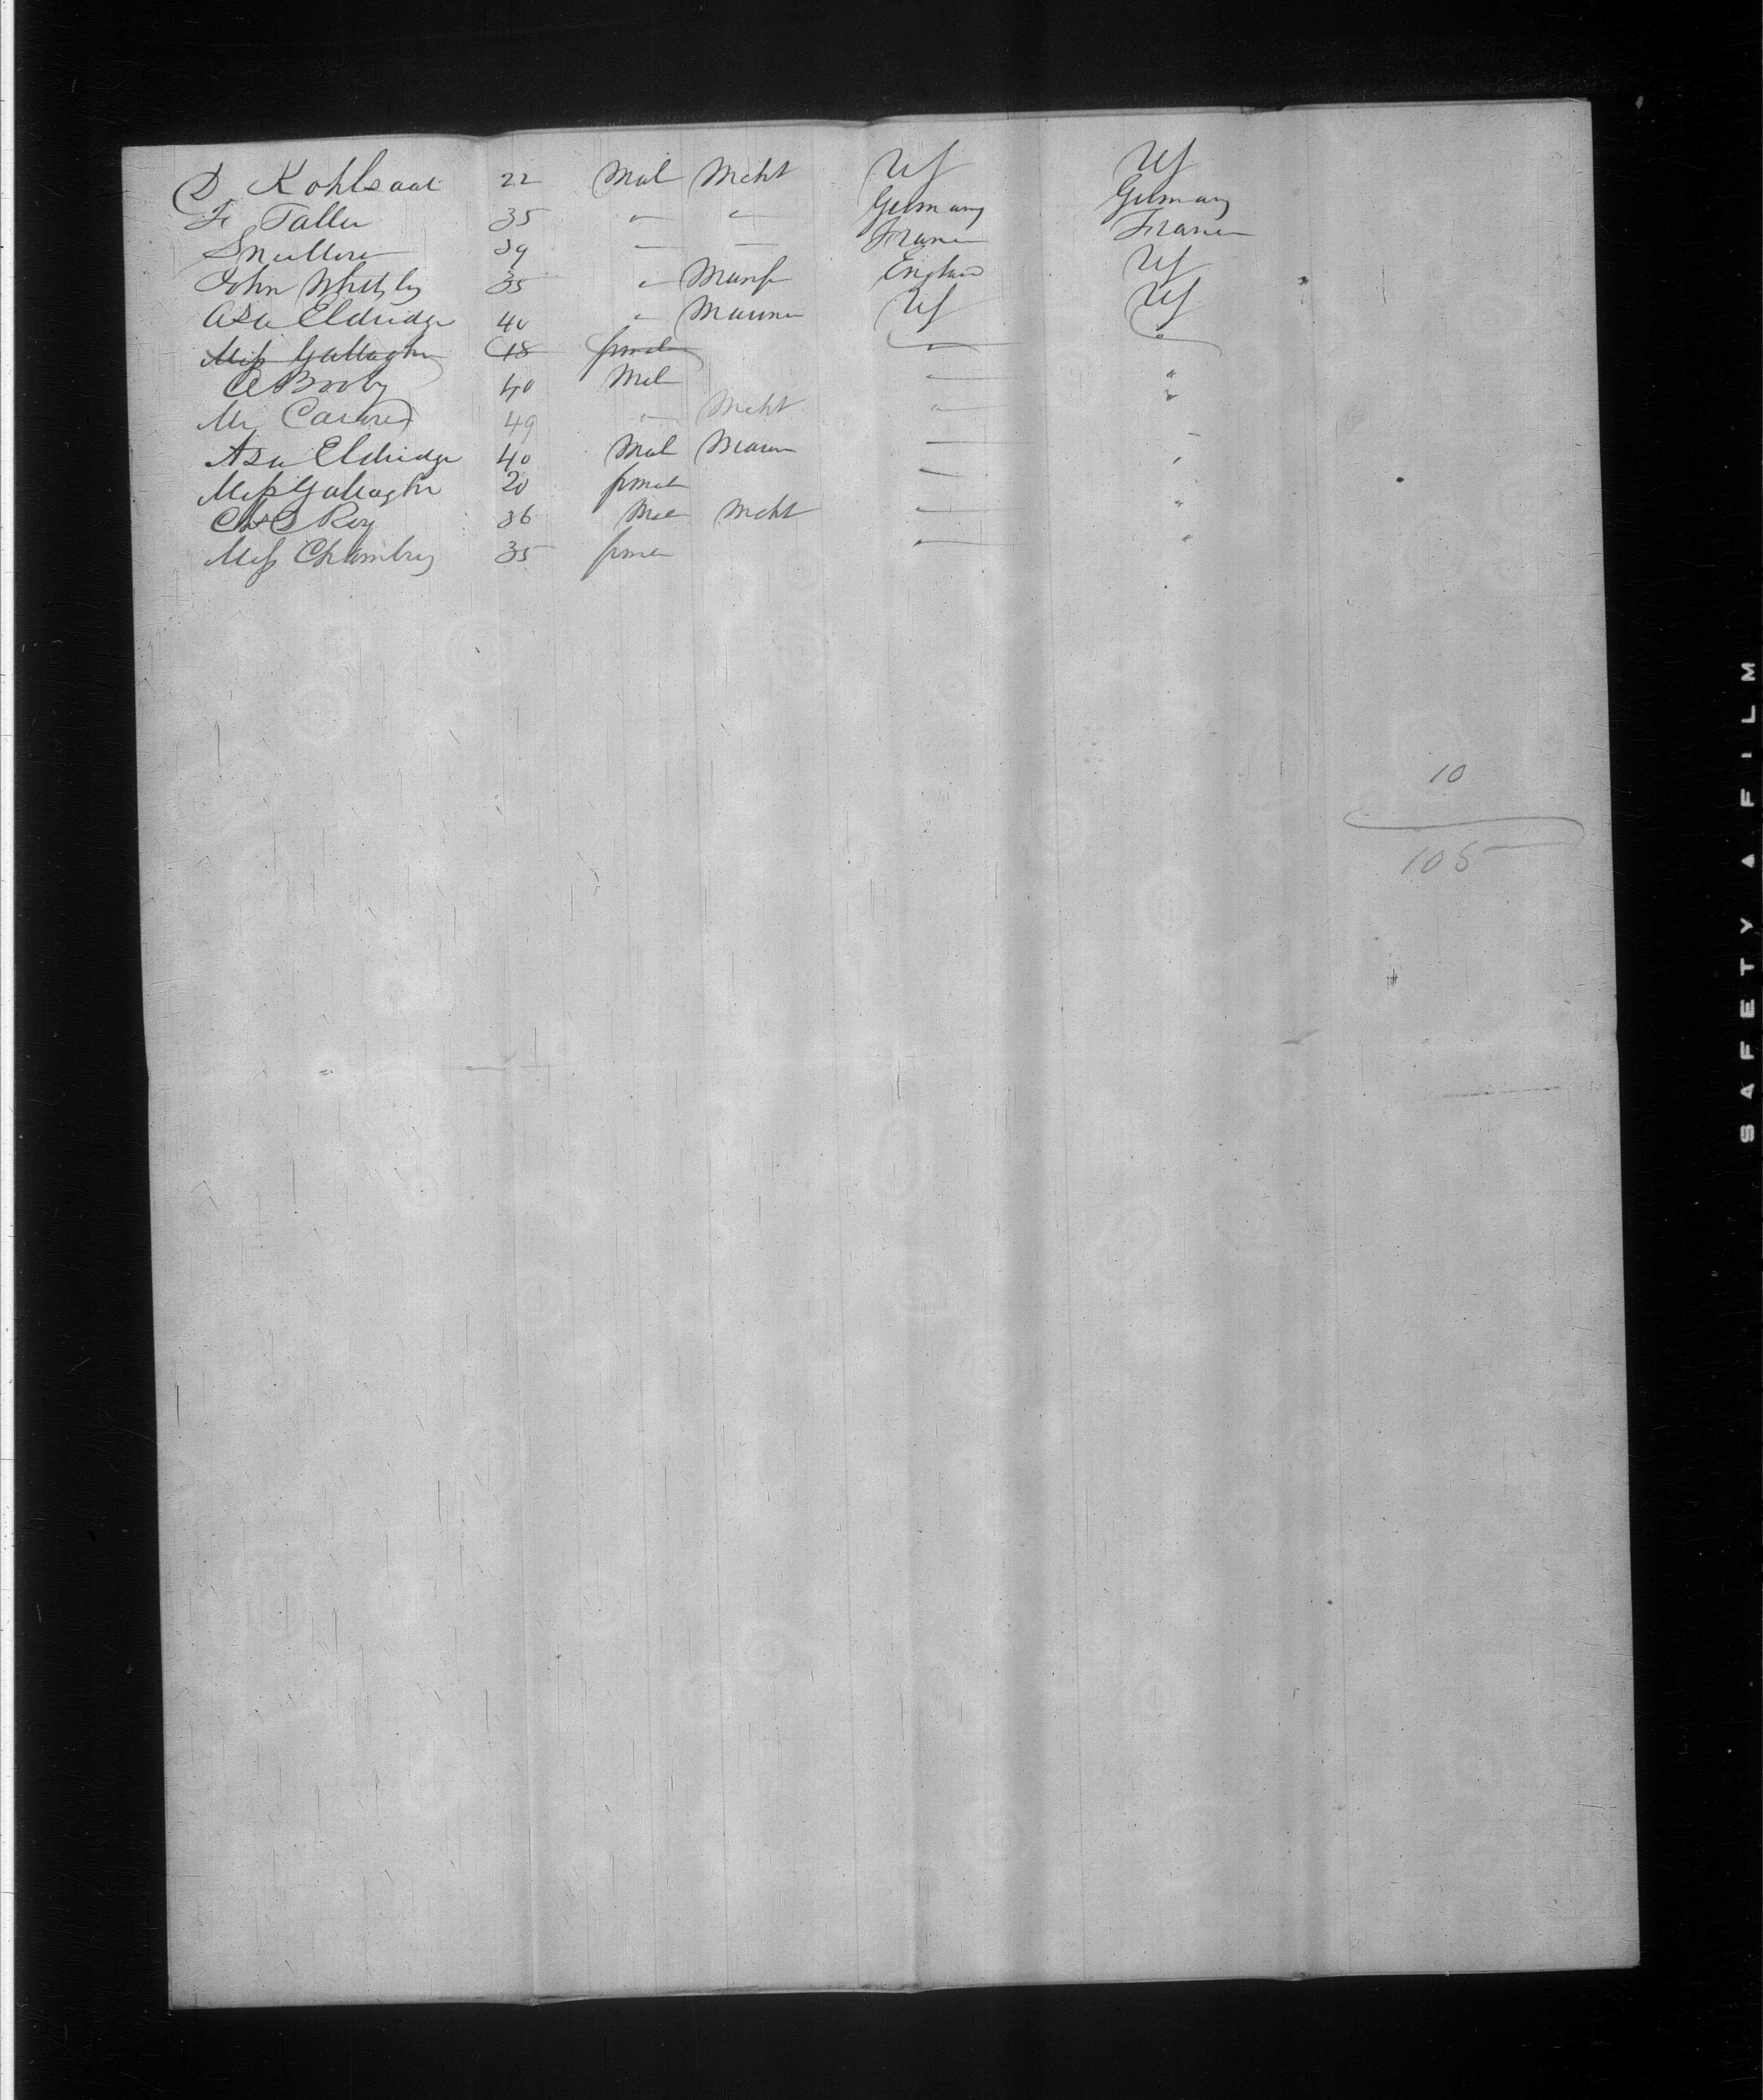 D Kohlsaat 22 Mal Mcht US US
F. Taller 35 " " Germany Germany
39 — — France France
John Whitly 35 " Manf England US
Asa Eldridge 40 " Marine US US
Miss Gallagher 18 female — "
A Booby 40 Mal — "
Mr 49 " Mcht " "
Asa Eldridge 40 Mal Marin — "
Miss Gallaghr 20 femal — "
Chs Roy 36 Mal Mcht — "
Miss Chambry 35 feme — "
10
105
SAFETY ▲ FILM